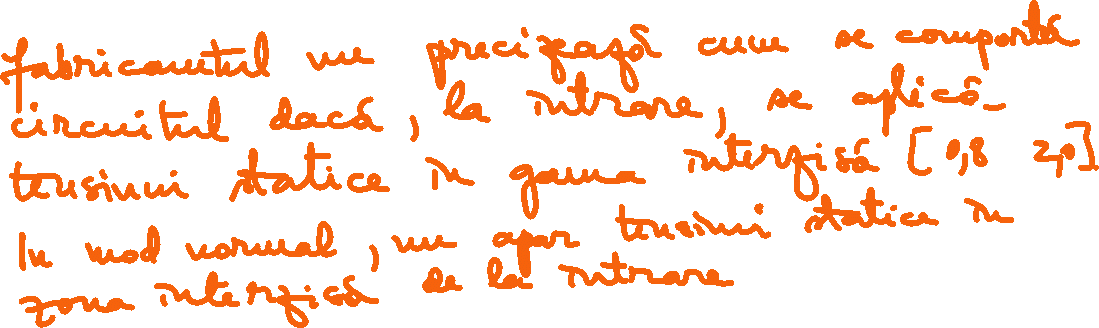 fabricantul nu precizează cum se comportă
circuitul dacă, la intrare, se aplică
tensiuni statice în gama interzisă [0,8 2,0]
In mod normal, nu apar tensiuni statice în
zona interzisă de la intrare